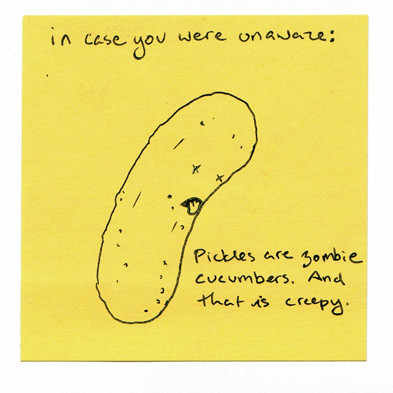 in case you were unaware:
Pickles are zombie
cucumbers. And
that is creepy.